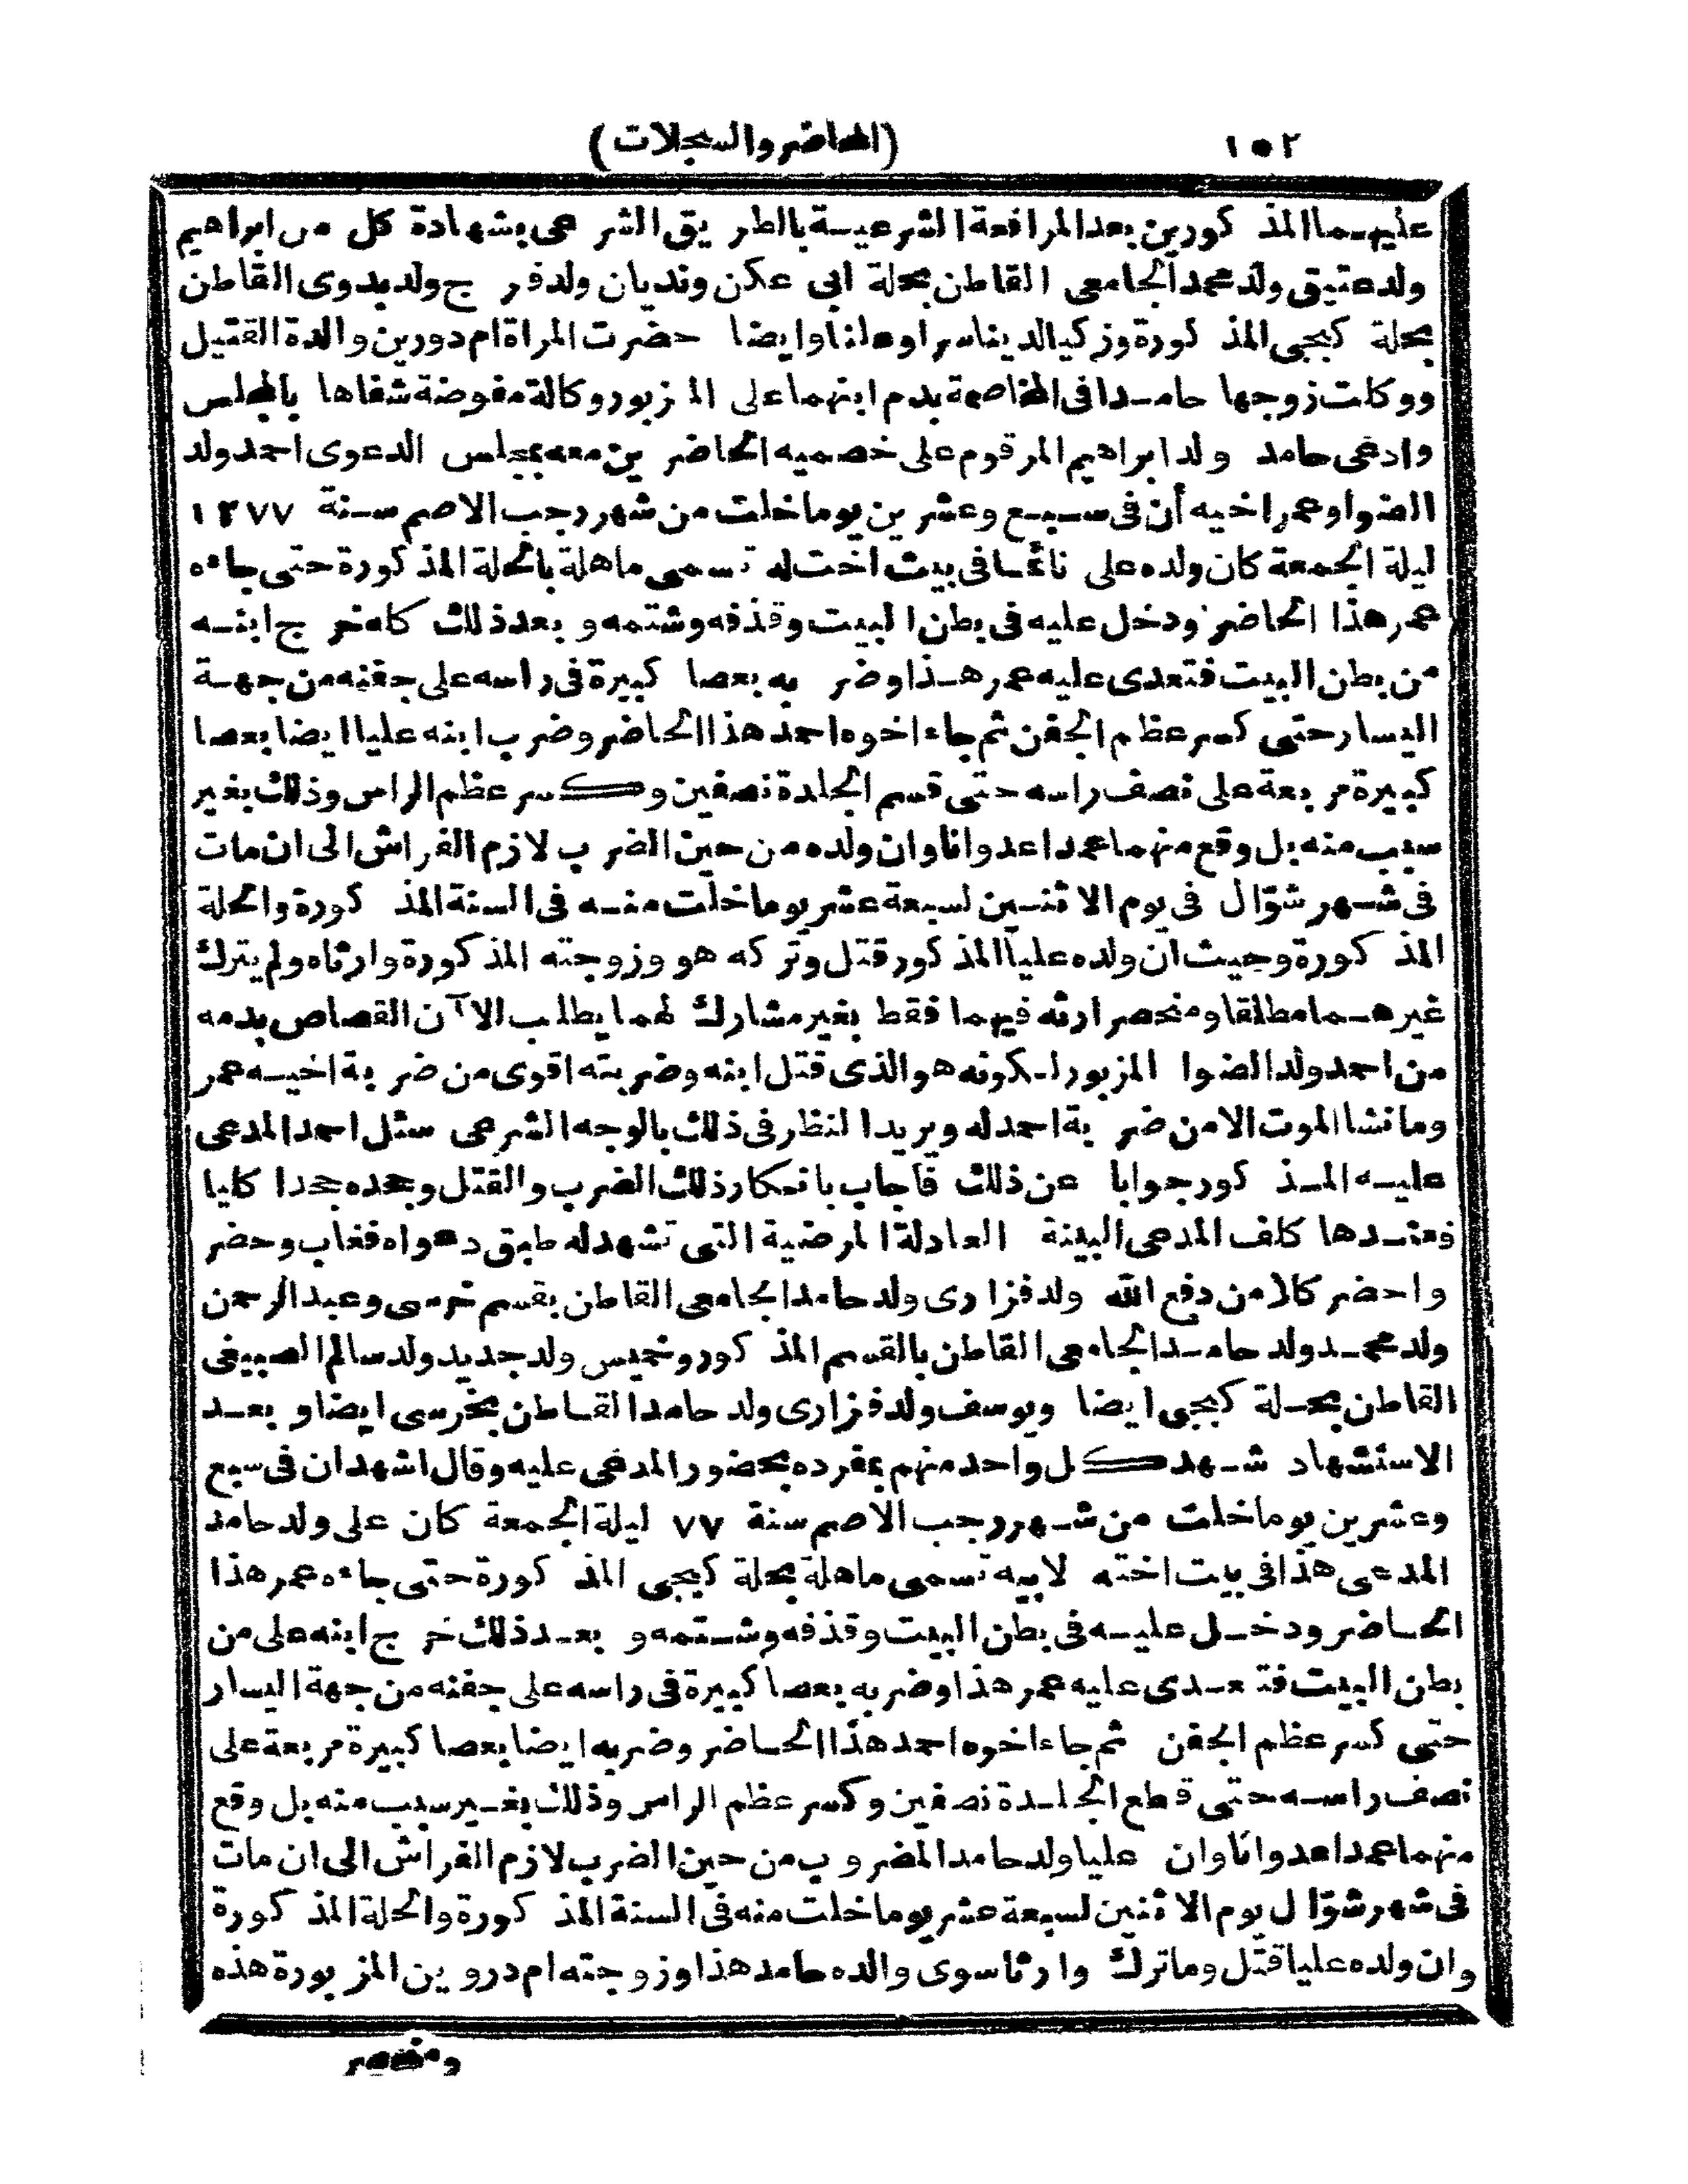 ١٥٢ (المحاضر والسجلات)
عليهما المذكورين بعد المرافعة الشرعية بالطريق الشرعى بشهادة كل من ابراهيم
ولد عتيق ولد محمد الجامعى القاطن بحلة ابى عكن ونديان ولد فرج ولد بدوى القاطن
بحلة كبجى المذكورة وزكيا لدينا سرا وعلنا وايضا حضرت المراة ام دورين والدة القتيل
ووكلت زوجها حامدا فى المخاصمة بدم ابنهما على المزبور وكالة مفوضة شفاها بالمجلس
وادعى حامد ولد ابراهيم المرقوم على خصميه الحاضرين معه بمجلس الدعوى احمد ولد
الضوا وعمر اخيه أن فى سبع وعشرين يوما خلت من شهر رجب الاصم سنة ١٢٧٧
ليلة الجمعة كان ولده على نائما فى بيت اخت له تسمى ماهلة بالحلة المذكورة حتى جاءه
عمر هذا الحاضر ودخل عليه فى بطن البيت وقذفه وشتمه وبعد ذلك كله خرج ابنه
من بطن البيت فتعدى عليه عمر هذا وضربه بعصا كبيرة فى راسه على جفنه من جهة
اليسار حتى كسر عظم الجفن ثم جاء اخوه احمد هذا الحاضر وضرب ابنه عليا ايضا بعصا
كبيرة مربعة على نصف راسه حتى قسم الجلدة نصفين وكسر عظم الراس وذلك بغير
سبب منه بل وقع منهما عمدا عدوانا وان ولده من حين الضرب لازم الفراش الى ان مات
فى شهر شوّال فى يوم الاثنين لسبعة عشر يوما خلت منه فى السنة المذكورة والحلة
المذكورة وحيث ان ولده عليا المذكور قتل وتركه هو وزوجته المذكورة وارثاه ولم يترك
غيرهما مطلقا ومنحصر ارثه فيهما فقط بغير مشارك لهما يطلب الآن القصاص بدمه
من احمد ولد الضوا المزبور لكونه هو الذى قتل ابنه وضربته اقوى من ضربة اخيه عمر
وما نشا الموت الا من ضربة احمد له ويريد النظر فى ذلك بالوجه الشرعى سئل احمد المدعى
عليه المذكور جوابا عن ذلك فاجاب بانكار ذلك الضرب والقتل وجحده جحدا كليا
فعندها كلف المدعى البينة العادلة المرضية التى تشهد له طبق دعواه فغاب وحضر
واحضر كلا من دفع الله ولد فزارى ولد حامد الجامعى القاطن بقسم خرسى وعبد الرحمن
ولد محمد ولد حامد الجامعى القاطن بالقسم المذكور وخميس ولد جديد ولد سالم الصبيغى
القاطن بحلة كبجى ايضا ويوسف ولد فزارى ولد حامد القاطن بخرسى ايضا وبعد
الاستشهاد شهد كل واحد منهم بمفرده بحضور المدعى عليه وقال اشهد ان فى سبع
وعشرين يوما خلت من شهر رجب الاصم سنة ٧٧ ليلة الجمعة كان على ولد حامد
المدعى هذا فى بيت اخته لابيه تسمى ماهلة بحلة كبجى المذكورة حتى جاءه عمر هذا
الحاضر ودخل عليه فى بطن البيت وقذفه وشتمه وبعد ذلك خرج ابنه على من
بطن البيت فتعدى عليه عمر هذا وضربه بعصا كبيرة فى راسه على جفنه من جهة اليسار
حتى كسر عظم الجفن ثم جاء اخوه احمد هذا الحاضر وضربه ايضا بعصا كبيرة مربعة على
نصف راسه حتى قطع الجلدة نصفين وكسر عظم الراس وذلك بغير سبب منه بل وقع
منهما عمدا عدوانا وان عليا ولد حامد المضروب من حين الضرب لازم الفراش الى ان مات
فى شهر شوّال يوم الاثنين لسبعة عشر يوما خلت منه فى السنة المذكورة والحلة المذكورة
وان ولده عليا قتل وما ترك وارثا سوى والده حامد هذا وزوجته ام دروين المزبورة هذه
ومنحصر